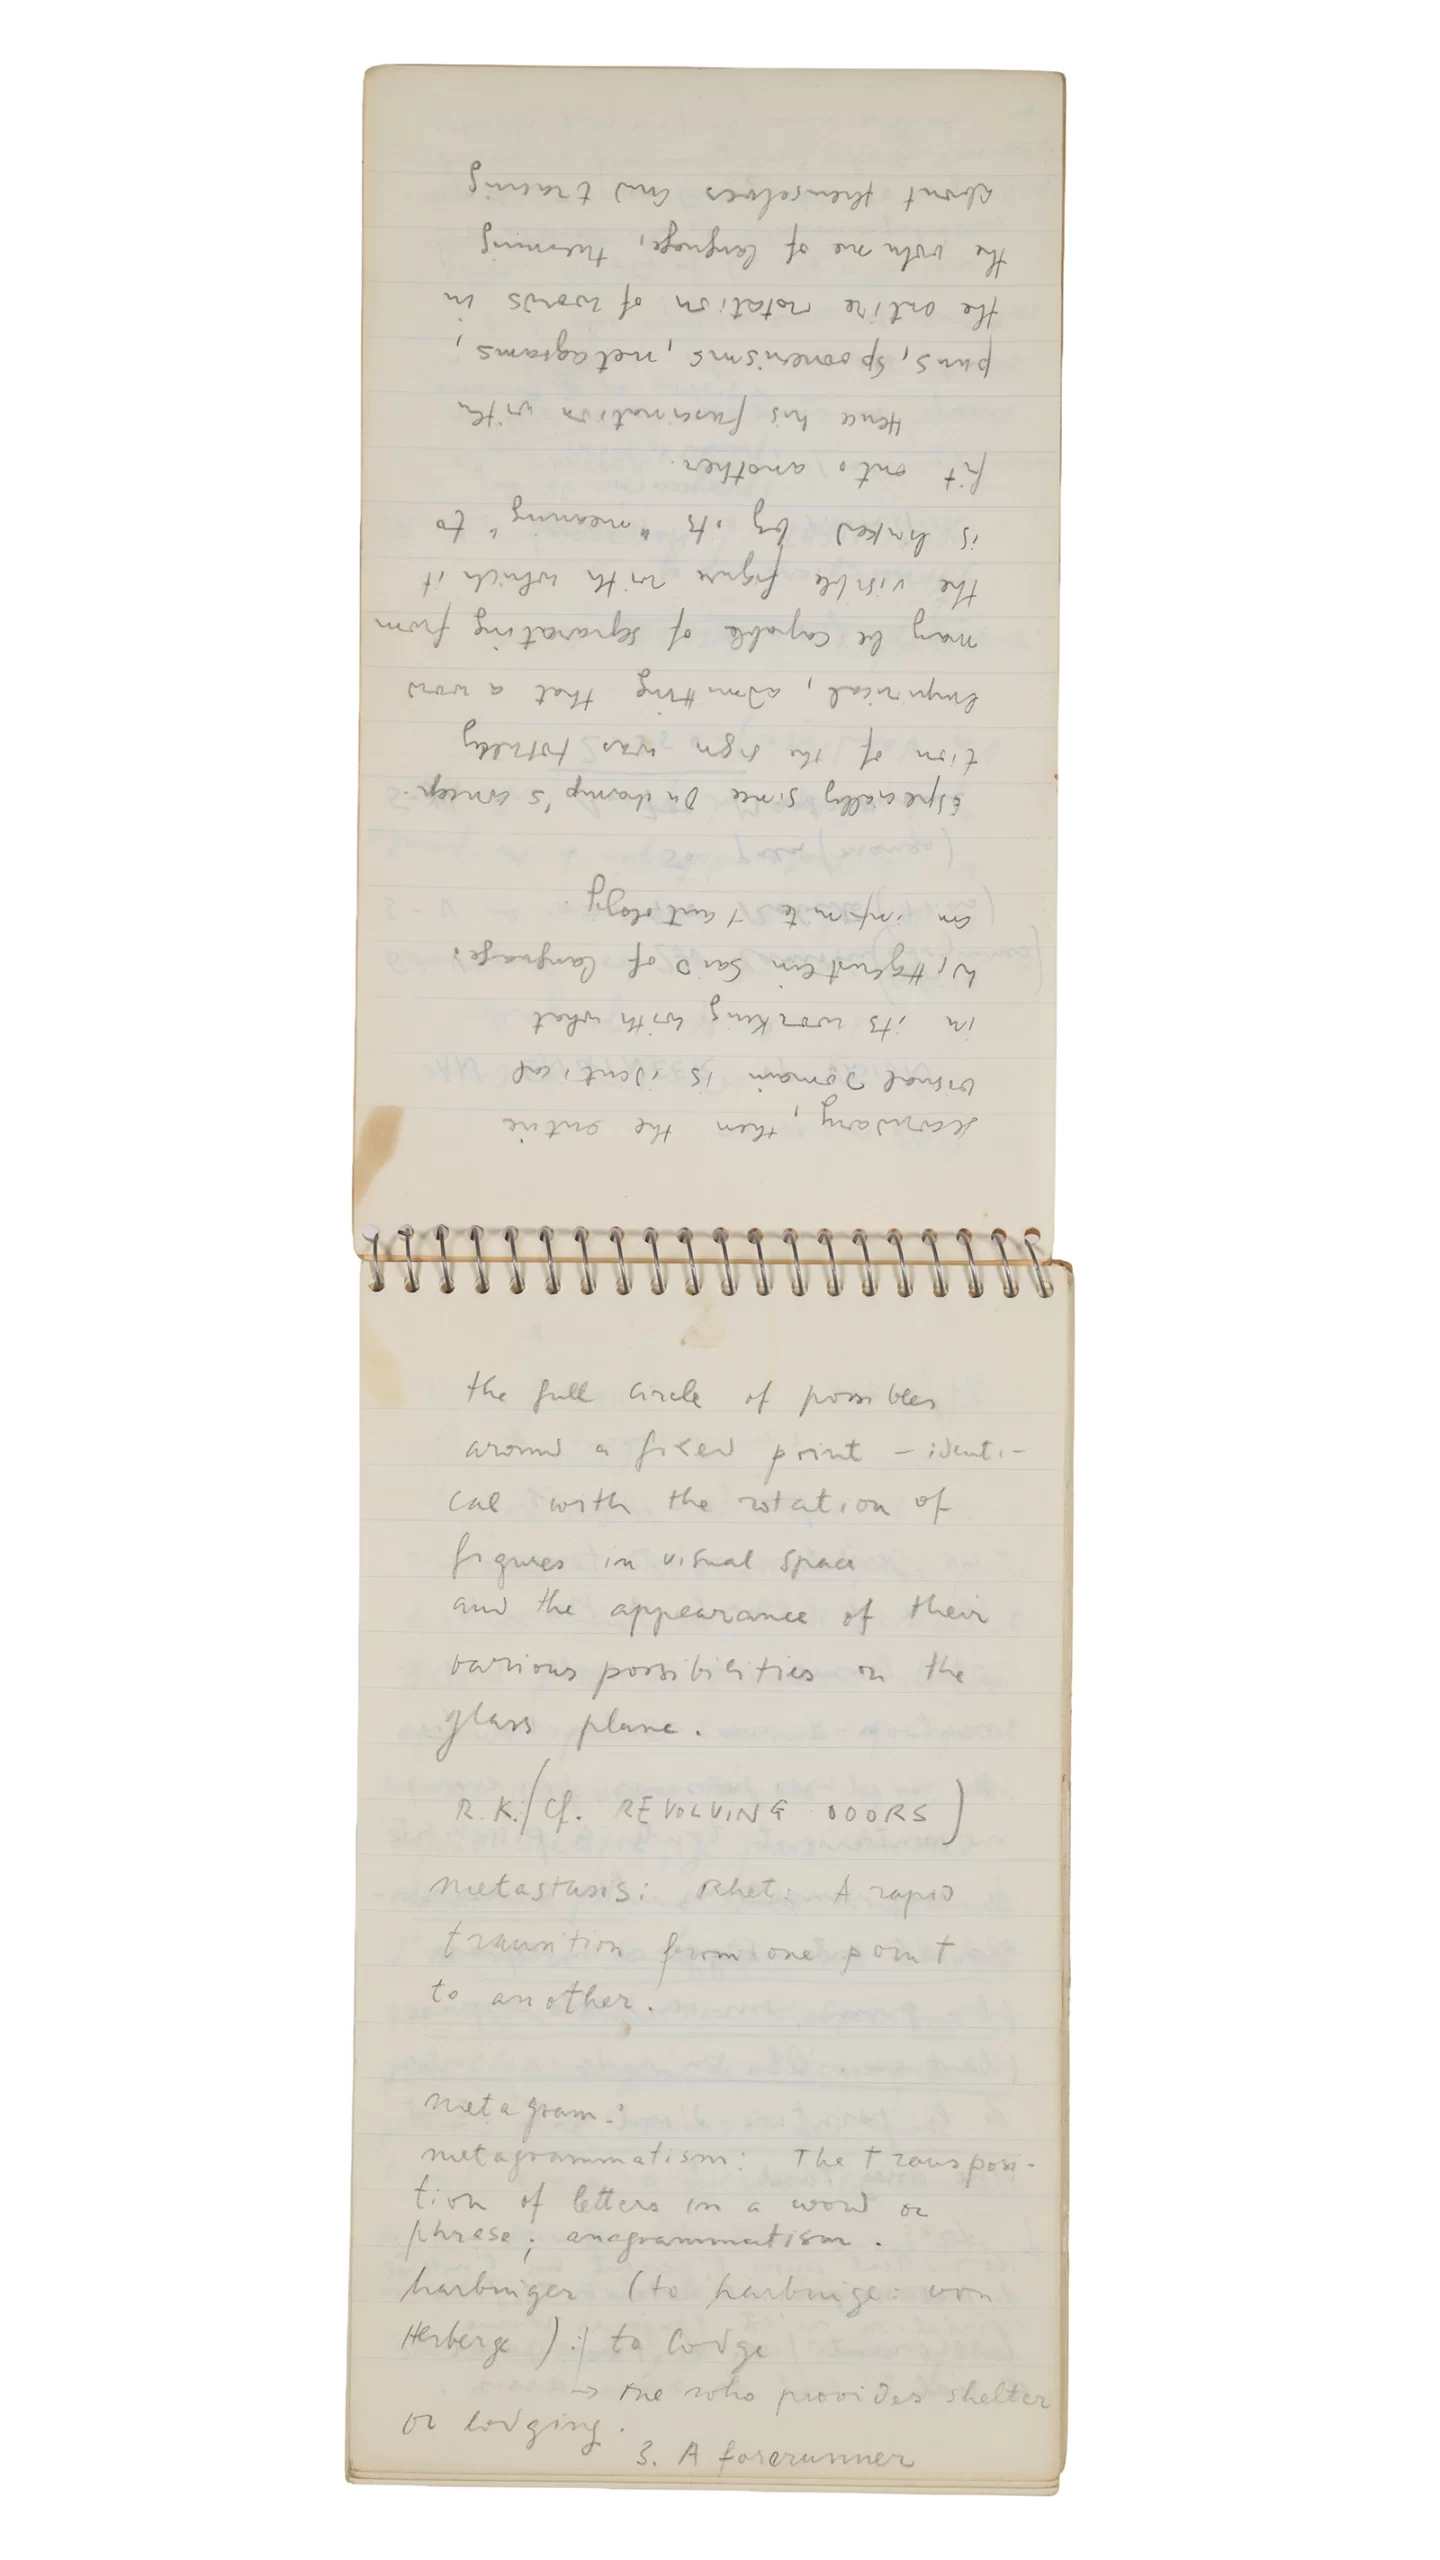 secondary, then the entire
visual domain is identical
in its working with what
Wittgenstein said of language:
an infinite tautology.
Especially since Duchamp's concep-
tion of the sign was totally
empirical, admitting that a word
may be capable of separating from
the visible figure with which it
is linked by its "meaning" to
fit onto another.
Hence his fascination with
puns, spoonerisms, metagrams,
the entire rotation of words in
the volume of language, turning
about themselves and tracing
the full circle of possibles
around a fixed point – identi-
cal with the rotation of
figures in visual space
and the appearance of their
various possibilities on the
glass plane.
R.K. (Cf. REVOLVING DOORS)
metastasis: Rhet: A rapid
transition from one point
to another.
metagram:
metagrammatism: The transposi-
tion of letters in a word or
phrase; anagrammatism.
harbinger (to harbinge: von
Herberge): to lodge
→ one who provides shelter
or lodging.
3. A forerunner